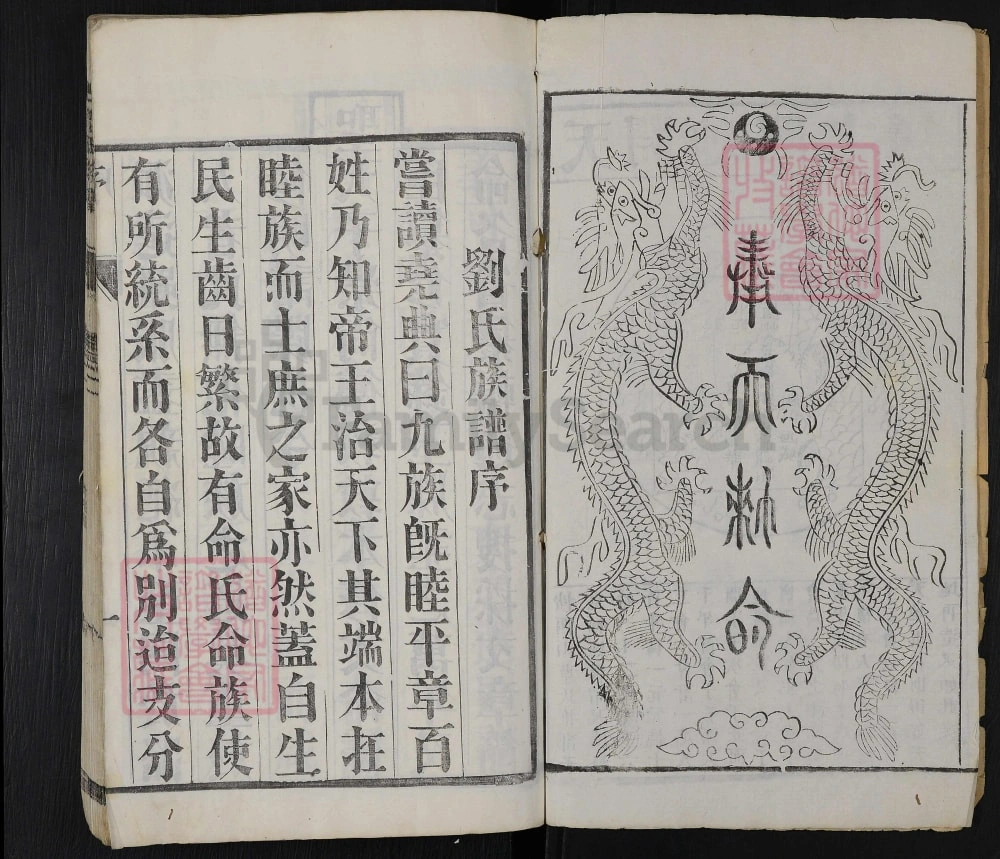 奉天勅命
劉氏族譜序
嘗讀堯典曰九族旣睦平章百
姓乃知帝王治天下其端本在
睦族而士庶之家亦然蓋自生
民生齒日繁故有命氏命族使
有所統系而各自爲別迨支分
序
一
FamilySearch